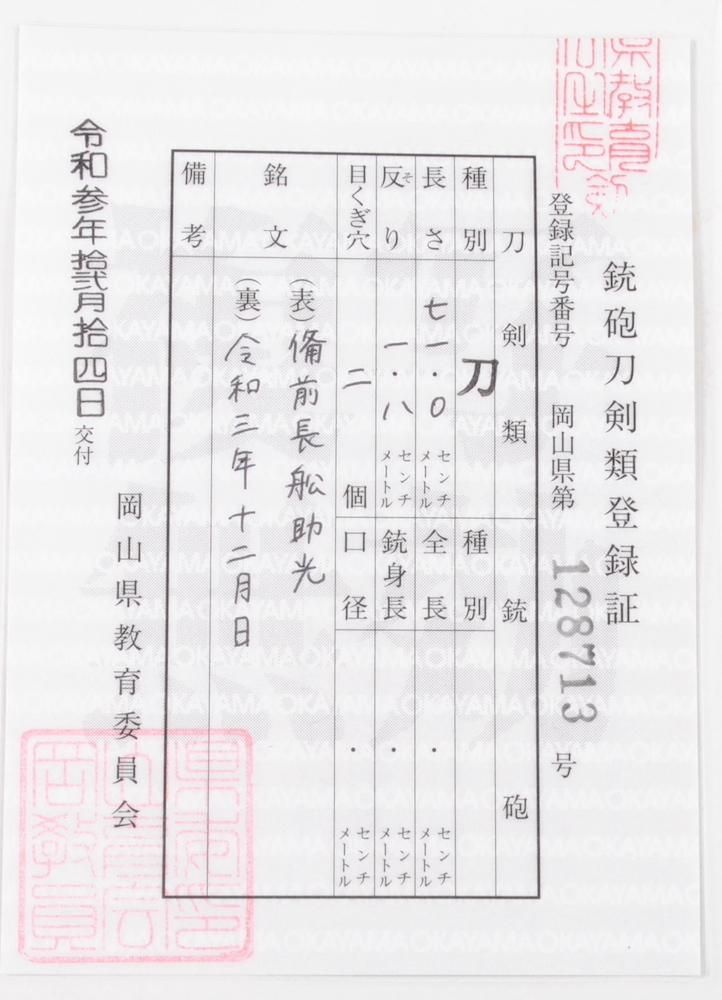 銃砲刀剣類登録証
登録記号番号 岡山県第 128713 号
刀剣類 銃砲
種別 刀 種別
長さ 七一.〇 センチメートル 全長 . センチメートル
反り そ 一.八 センチメートル 銃身長 . センチメートル
目くぎ穴 二 個 口径 . センチメートル
銘文 (表)備前長舩助光
(裏)令和三年十二月日
備考
岡山県教育委員会
令和参年拾弐月拾四日 交付
OKAYAMA